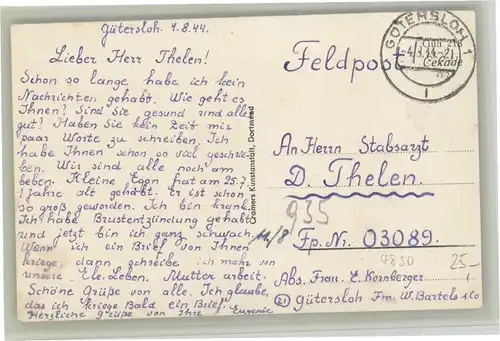 Gütersloh. 4.8.44.
Lieber Herr Thelen!
Schon so lange habe ich kein
Nachrichten gehabt. Wie geht es
Ihnen? Sind Sie gesund und alles
gut! Haben Sie kein Zeit mir
paar Worte zu schreiben. Ich
habe Ihnen schon so viel geschrie-
ben. Wir sind alle noch am
beben. Kleine Egon hat am 25.7
1 Jahre alt gehabt. Er ist schon
so groß geworden. Ich bin krunk.
Ich habe Brustentzündung gehabt
und jetzt bin ich ganz schwach.
Wenn ich ein Brief von Ihnen
kriege, dann schreibe ich mehr von
unsere Leben. Mutter arbeit.
Schöne Grüße von alle. Ich glaube,
das ich kriege Bald ein Brief.
Herzliche grüße von Ihre Eugenie
Cramers Kunstanstalt, Dortmund
GÜTERSLOH 1
Feldpost
An Herrn Stabsarzt
D. Thelen
935
11/8
Fp. Nr. 03089.
4830
25-
Abs. Frau. E. Kornberger
(21) Gütersloh Fm. W. Bartels & Co